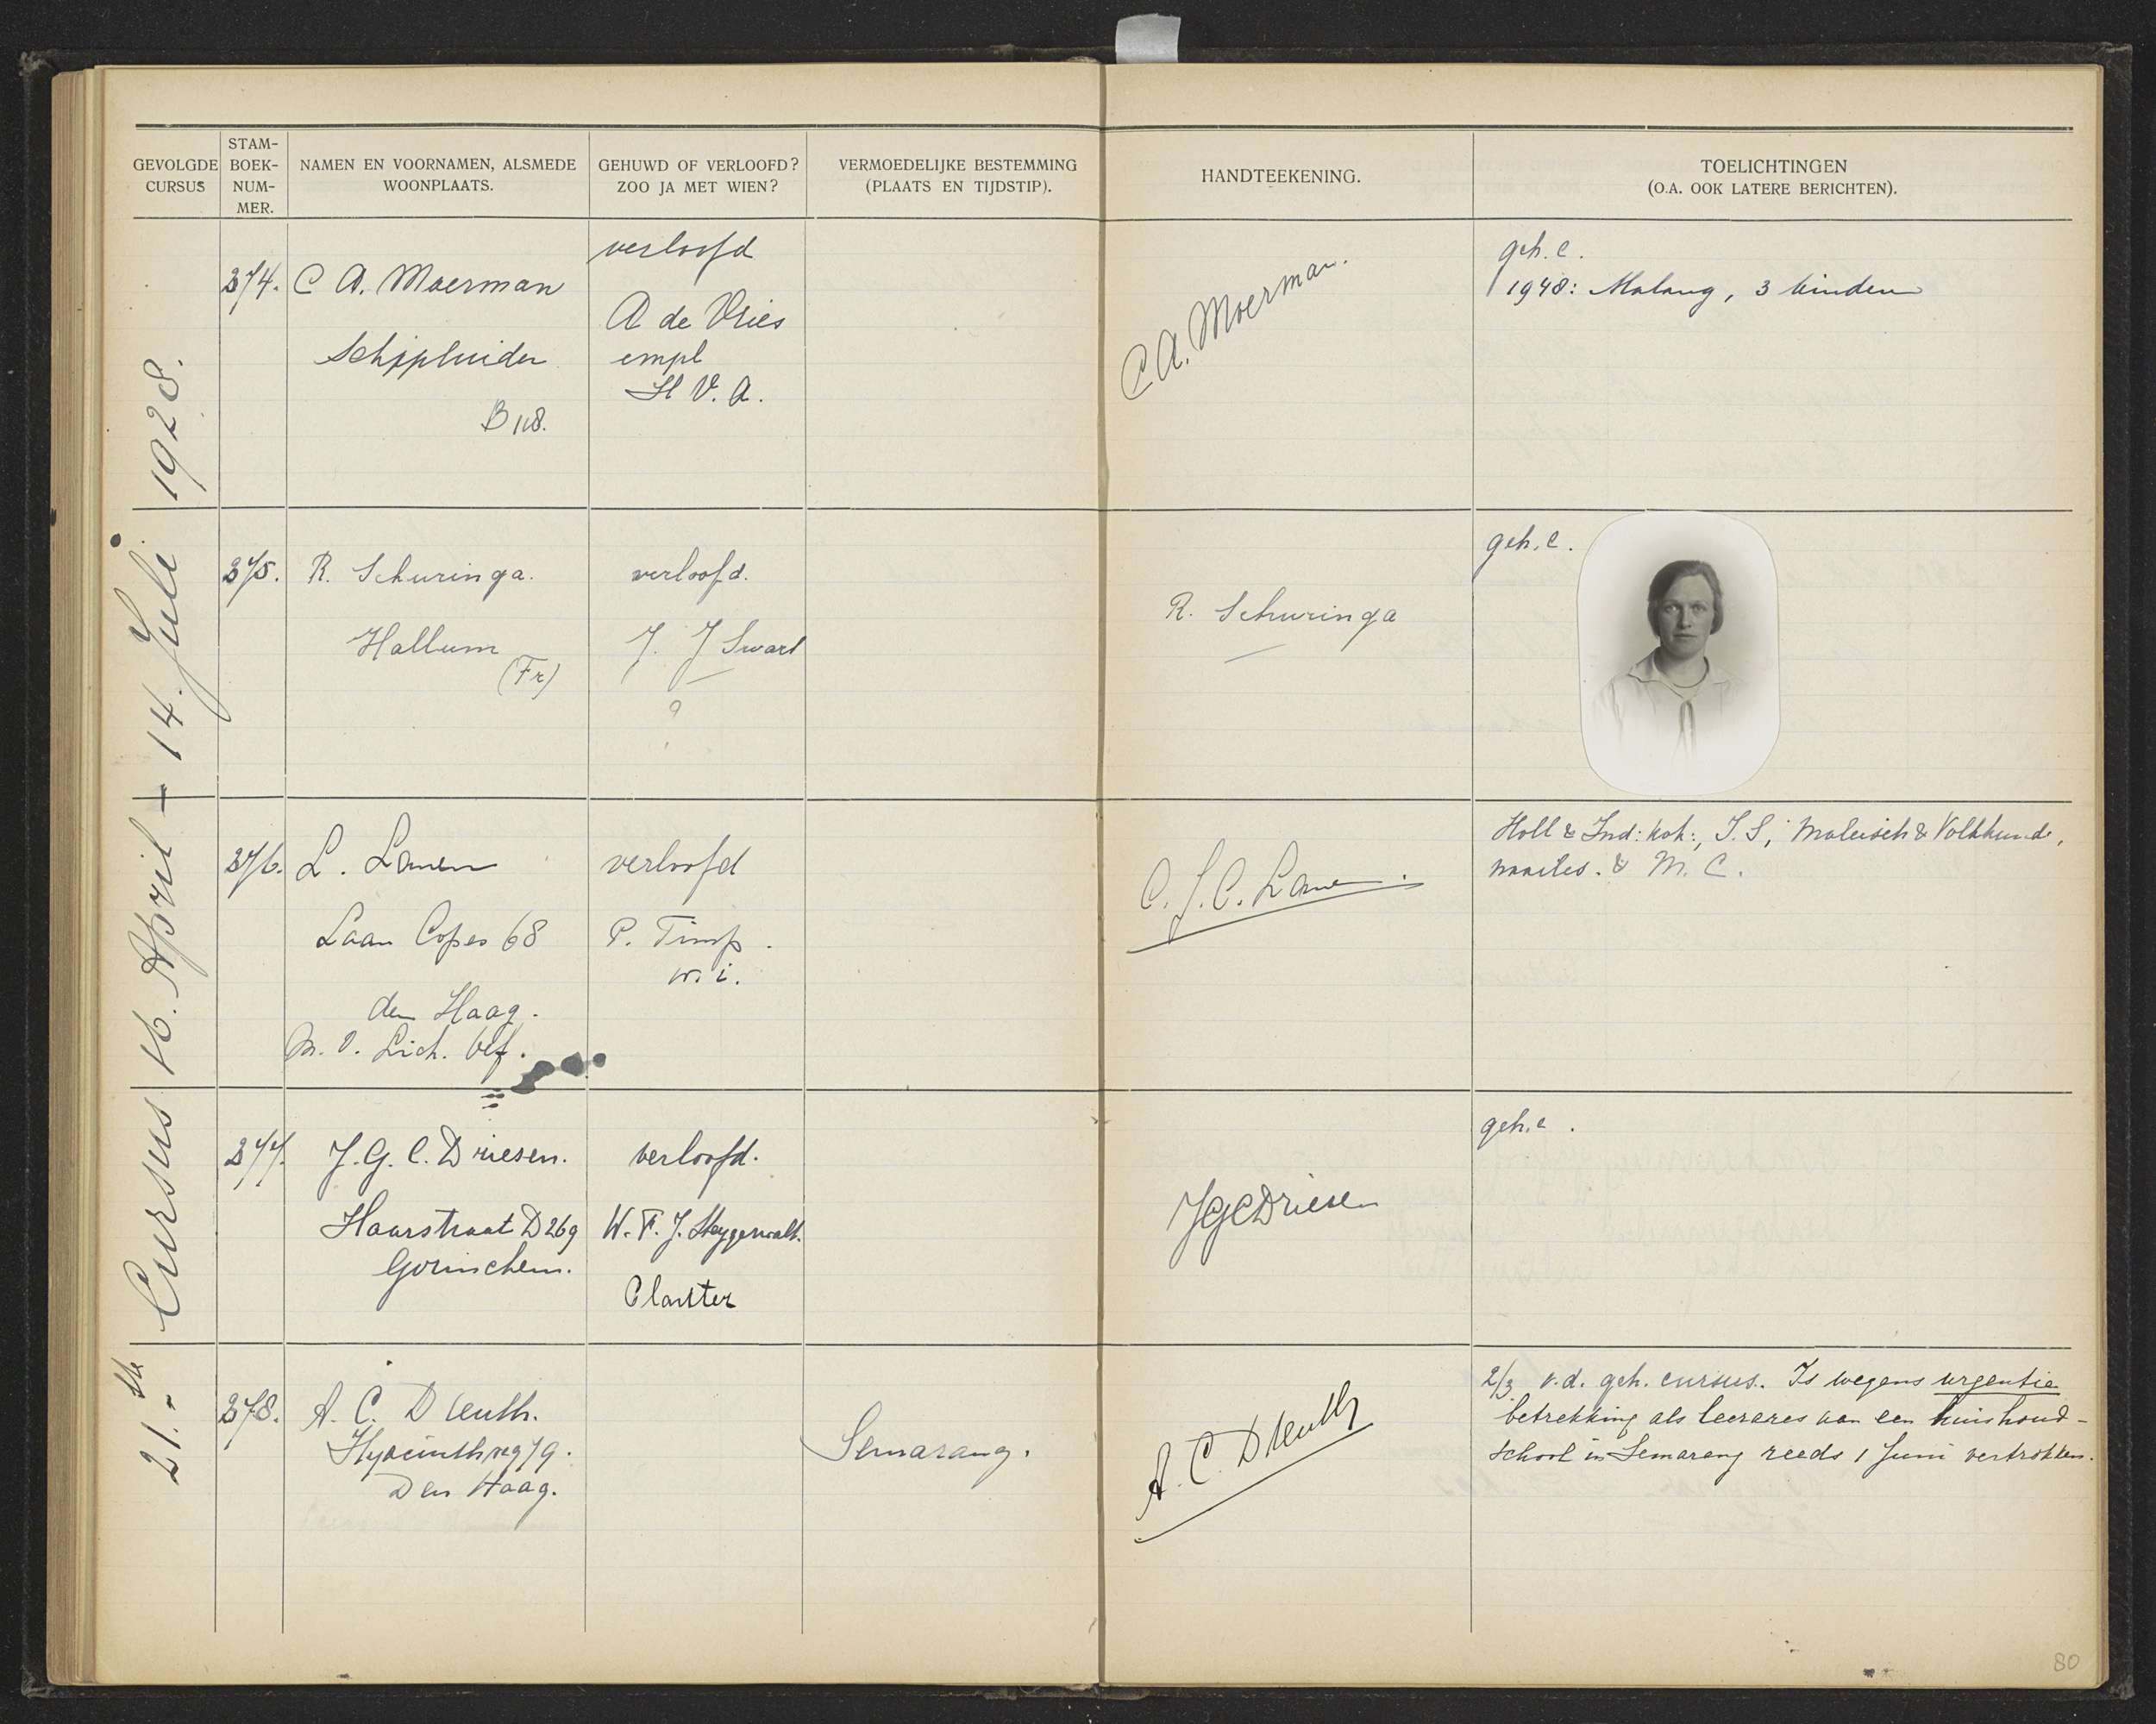 GEVOLGDE
CURSUS
STAM-
BOEK-
NUM-
MER.
NAMEN EN VOORNAMEN, ALSMEDE
WOONPLAATS.
GEHUWD OF VERLOOFD?
ZOO JA MET WIEN?
VERMOEDELIJKE BESTEMMING
(PLAATS EN TIJDSTIP).
HANDTEEKENING.
TOELICHTINGEN
(O.A. OOK LATERE BERICHTEN).
21.- ste Cursus 16. April - 14. Juli 1928.
374.
C A. Moerman
Schipluiden
B 118.
verloofd
A de Vries
empl
H V. A.
C A. Moerman.
geh. c.
1948: Malang, 3 kinderen
375.
R. Schuringa.
Hallum
(Fr)
verloofd.
J. J Swart
?
R. Schuringa
geh. c.
376.
L. Lanen
Laan Copes 68
den Haag.
M. O. Lich. Oef.
verloofd
P. Timp.
w. i.
C. J. C. Lanen.
Holl & Ind: kok:, T. S, Maleisch & Volkkunde,
naailes. & M. C.
377.
J. G. C. Driesen.
Haarstraat D269
Gorinchem.
verloofd.
W. F. J. Steygerwalt.
Planter
JGCDriesen
geh. c.
378.
A. C. Drenth.
Hyacinthweg 79.
Den Haag.
Semarang.
A. C. Drenth
2/3 v.d. geh. cursus. Is wegens urgentie
betrekking als leerares aan een huishoud-
school in Semarang reeds 1 Juni vertrokken.
80